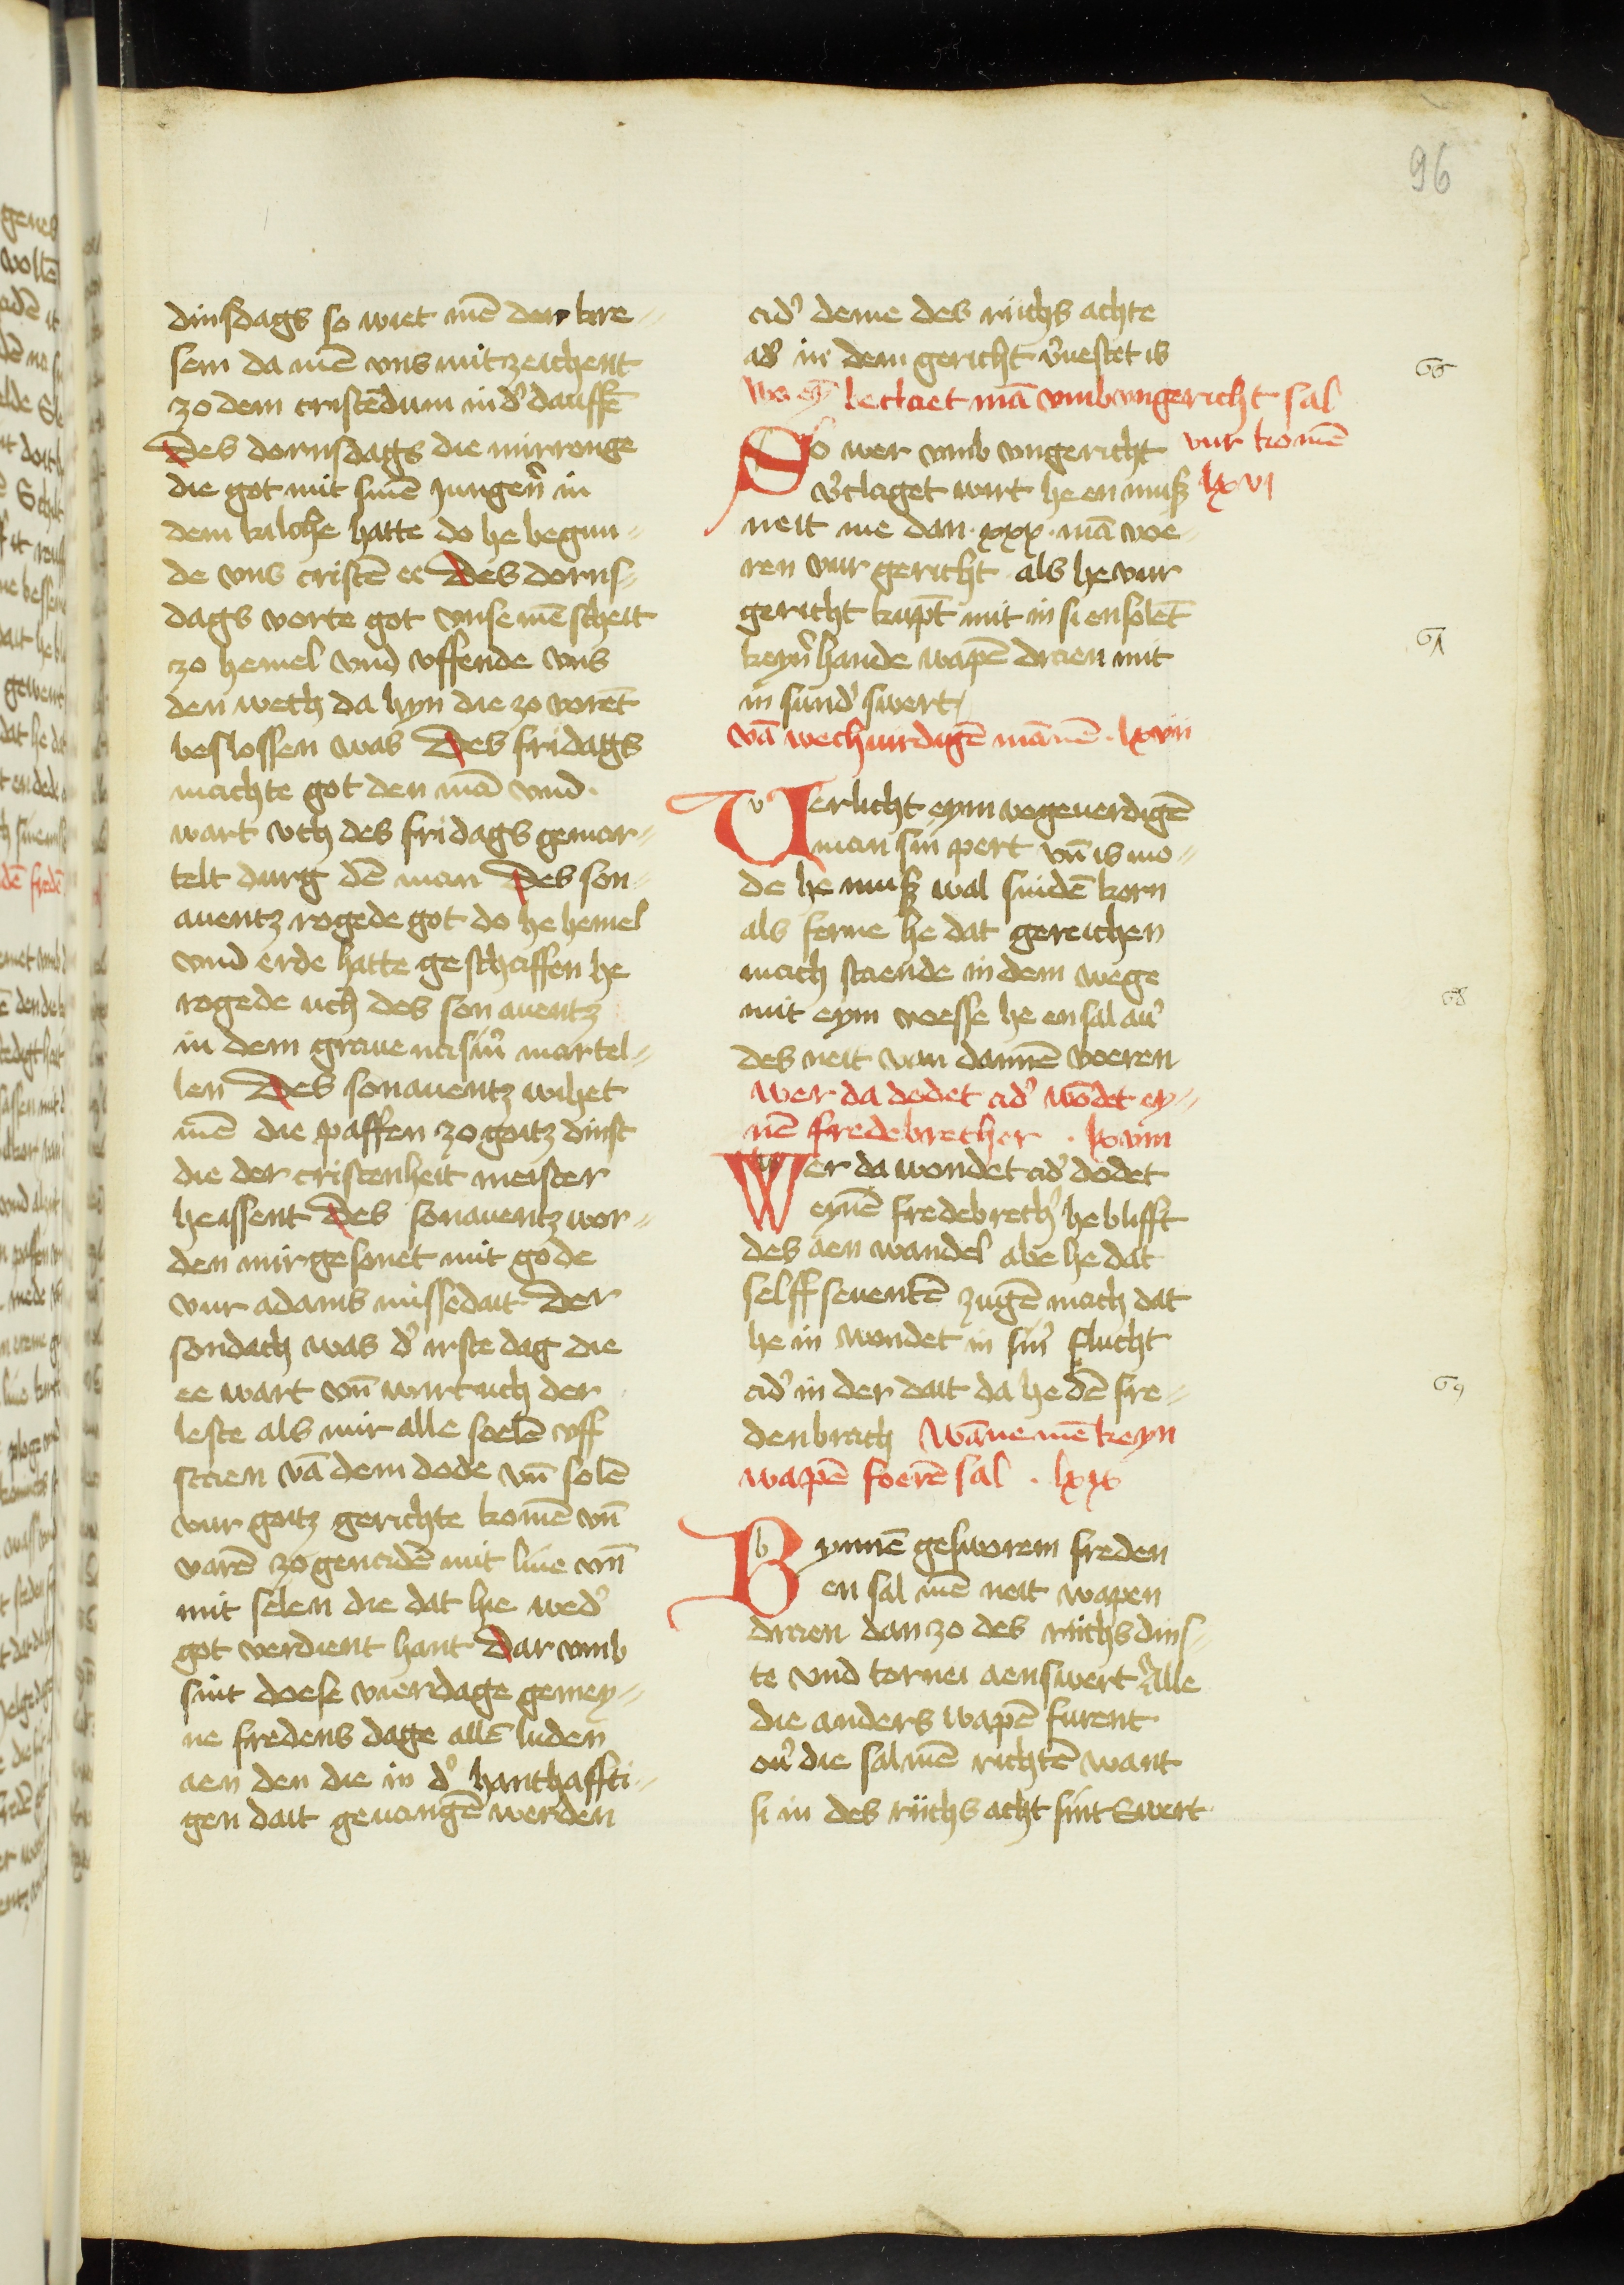 96
dinsdags so wiet mē den kre-
sem da mē vns mit zeichent
zo dem cristēdum in d' dauffē
Des dornsdags die mirronge
die got mit sinē Jungeȓn in
dem kilche hatte do he begun-
de vns cristē ee Des dorns-
dags vorte got vnse mēscheit
zo hemel vnd vffende vns
den wech da hyn die zo vorēt
beslossen was Des fridags
machte got den mā vnd
wart vch des fridags gemar-
telt durg dē man Des son-
auentz rogede got do he hemel
vnd erde hatte geschaffen he
rogede uch des sonauentz
in dem graue na sin' martel-
len Des sonauentz wihet
mē die paffen zo gotz dinst
die der cristenheit meister
heissent Des sonauentz wor-
den mir gesonet mit gode
vur adams missedait Der
sondach was d' irste dag die
ee wart vn̄ wirt uch der
leste als mir alle soelē vff
staen vā dem dode vn̄ solē
vur gotz gerichte komē vn̄
varē zo genadē mit liue vn̄
mit selen die dat hie wed'
got verdient hant Dar vmb
sint doese vierdage gemey-
ne fredens dage allē luden
aen den die in d' hanthaffti-
gen dait geuangē werden
ad' deme des richs achte
ad' in dem gericht v'uestet is
wo eȳ beclaet mā vmb vngericht sal
vur komē
lxvi
So wer vmb vngericht
v'claget wirt he en muß
neit me dan · xxx · mā voe-
ren vur gericht als he vur
gericht kūpt mit in si en solēt
keyn' hande wapē draen mit
in sund' swert
vā wech wirdigē mānē · lxvii
Verlicht eym wegeuerdigē
man sin pert vn̄ is mo-
de he muß wal snidē korn
als ferne he dat gereichen
mach staende in dem wege
mit eym voesse he en sal au'
des neit van dannē voeren
wer da dodet ad' wōdet ey-
nē fredebrecher · lxviii
Wer da wondet ad' dodet
eynē fredebrech' he blifft
des aen wandel abe he dat
selff seuentē zugē mach dat
he in wondet in sin' flucht
ad' in der dait da he dē fre-
den brach Wāne mē keyn
wapē foerē sal · lxix
Bynnē geswoerem freden
en sal mē neit wapen
draen dan zo des richs dins-
te vnd tornei aen swert Alle
die anders wapē furent
ou' die sal mē richtē want
si in des richs acht sint Swert
66
67
68
69